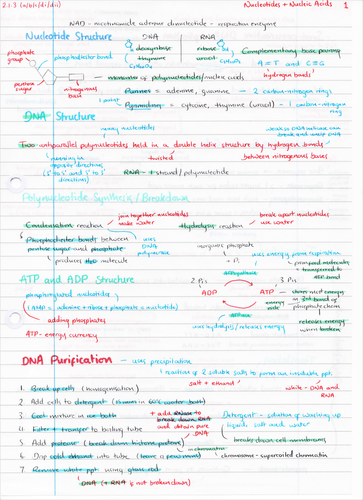 2.1.3 (a/b/c/d i/d ii)
Nucleotides + Nucleic Acids 1
NAD - nicotinamide adenine dinucleotide - respiration enzyme
Nucleotide Structure
DNA RNA
phosphate group
phosphodiester bond
deoxyribose
ribose
thymine
uracil
Complementary base pairing
A = T and C ≡ G
hydrogen bonds
pentose sugar
nitrogenous base
monomer of polynucleotides/nucleic acids
Purines = adenine, guanine - 2 carbon-nitrogen rings
Pyrimidines = cytosine, thymine (uracil) - 1 carbon-nitrogen ring
DNA Structure
many nucleotides
Two antiparallel polynucleotides held in a double helix structure by hydrogen bonds
running in opposite directions
(5' to 3' and 3' to 5' directions)
twisted
between nitrogenous bases
RNA - 1 strand/polynucleotide
Polynucleotide Synthesis/Breakdown
Condensation reaction
join together nucleotides
make water
Hydrolysis reaction
break apart nucleotides
use water
Phosphodiester bonds between pentose sugar and phosphate
uses DNA polymerase
produces H₂O molecule
inorganic phosphate
uses energy from respiration
ATP and ADP Structure
phosphorylated nucleotides
(ADP = adenine + ribose + phosphate = nucleotide)
adding phosphates
ATP - energy currency
2 Pis
3 Pis
ADP
ATP
uses hydrolysis/releases energy
releases energy when broken
DNA Purification - uses precipitation
reaction of 2 soluble salts to form an insoluble ppt
salt + ethanol
white - DNA and RNA
1. Break up cells (homogenisation)
2. Add cells to detergent (+ 15 mins in 60°C water bath)
3. Cool mixture in ice bath
+ add RNase to break down RNA and obtain pure DNA
Detergent - solution of washing up liquid, salt and water
4. Filter + transfer to boiling tube
breaks down cell membranes
5. Add protease (breaks down histone proteins)
in chromatin
6. Drip cold ethanol into tube (leave a few mins)
chromosome - supercoiled chromatin
7. Remove white ppt using glass rod
DNA (+ RNA if not broken down)